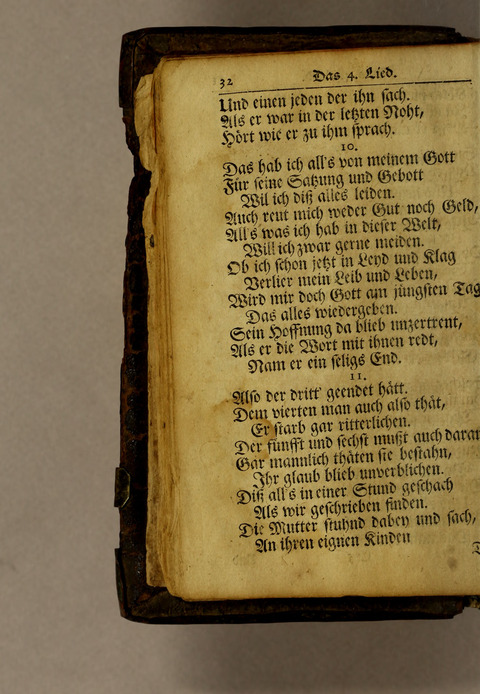 32 Das 4. Lied.
Und einen jeden der ihn sach.
Als er war in der letzten Noht,
Hört wie er zu ihm sprach.
10.
Das hab ich all's von meinem Gott
Für seine Satzung und Gebott
Wil ich diß alles leiden.
Auch reut mich weder Gut noch Geld,
All's was ich hab in dieser Welt,
Will ich zwar gerne meiden.
Ob ich schon jetzt in Leyd und Klag
Verlier mein Leib und Leben,
Wird mir doch Gott am jüngsten Tag
Das alles wiedergeben.
Sein Hoffnung da blieb unzertrent,
Als er die Wort mit ihnen redt,
Nam er ein seligs End.
11.
Also der dritt geendet hätt.
Dem vierten man auch also thät,
Er starb gar ritterlichen.
Der fünfft und sechst mußt auch daran
Gar mannlich thäten sie bestahn,
Ihr glaub blieb unverblichen.
Diß all's in einer Stund geschach
Als wir geschrieben finden.
Die Mutter stuhnd dabey und sach,
An ihren eignen Kinden